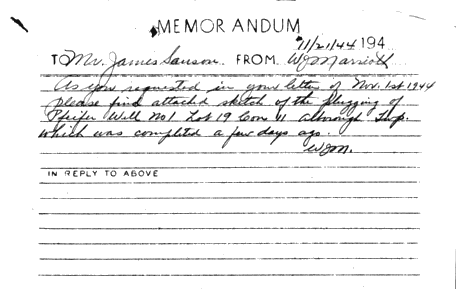 MEMORANDUM
11/21/44 194
TO Mr. James Sanson. FROM W J Marriott
As you requested in your letter of Nov. 1st 1944
please find attached sketch of the plugging of
Pfeifer Well No 1 Lot 19 Con 11 Twp.
which was completed a few days ago.
WJM.
IN REPLY TO ABOVE